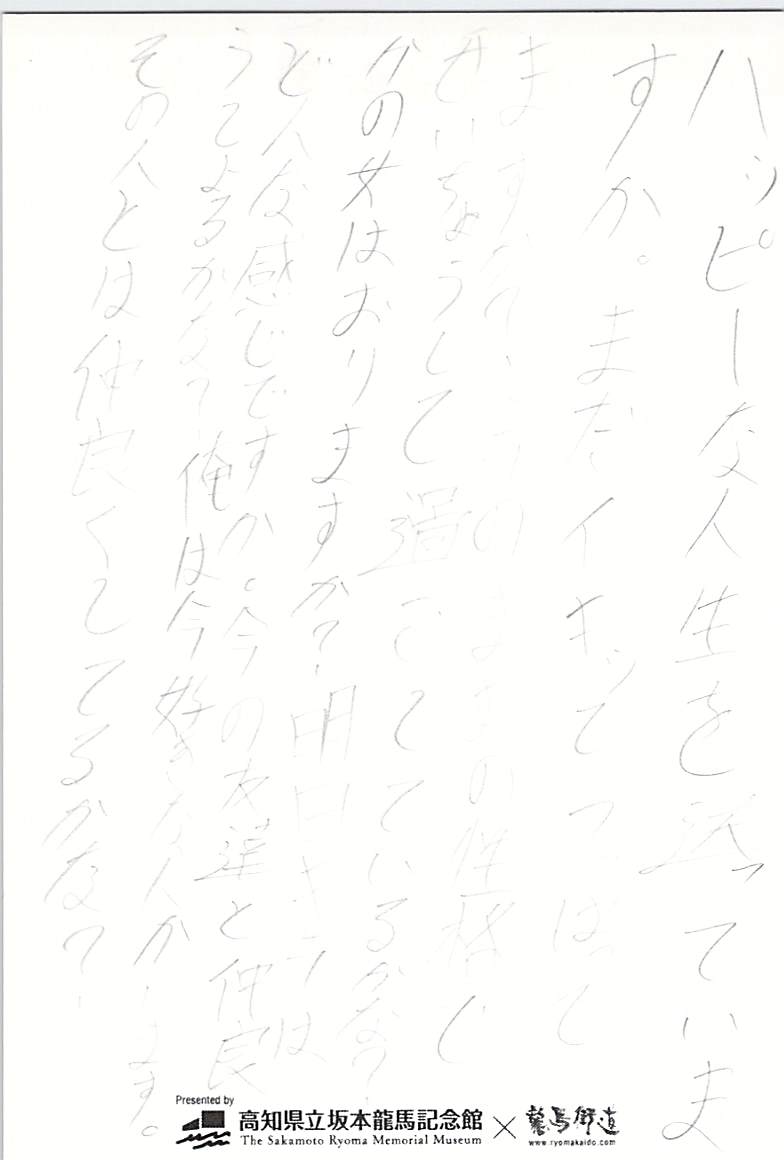 ハッピーな人生を送っていま
すか。まだイキって つっぱって
ますかて、そのままの性格で
せいちょうして過ごしているかな?
かの女はおりますか?明日キラは
どんな感じですか。今の友達と仲良
うしてよるかな?俺は今好きな人がいます。
その人とは仲良くしてるかな?
Presented by
高知県立坂本龍馬記念館 × 龍馬街道
The Sakamoto Ryoma Memorial Museum
www.ryomakaido.com